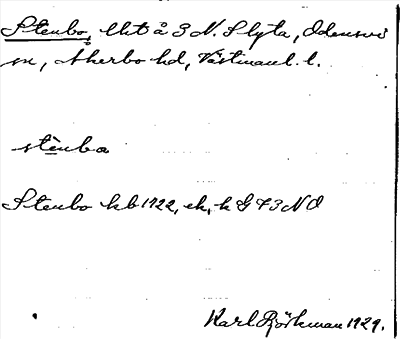 Stenbo, lht å 3 N. Slyta, Odensvi
sn, Åkerbo hd, Västmanl. l.
stènba
Stenbo kb 1922, ek, h G 73 NO
Karl Björkman 1929.